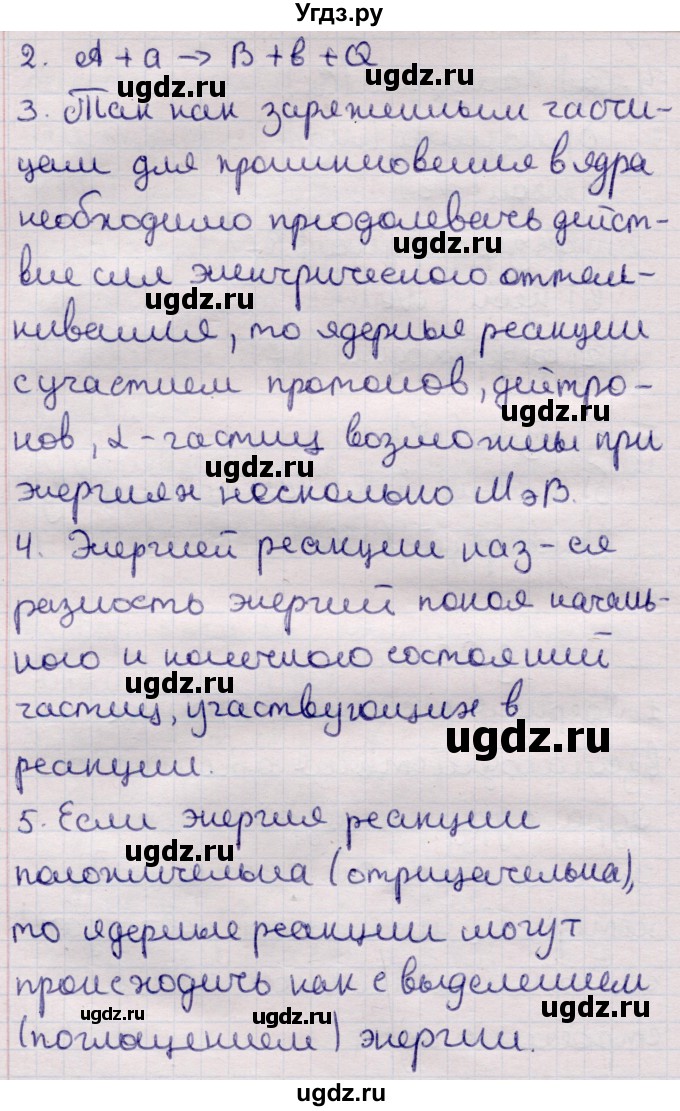 Угдз.ру
2. A + a → B + b + Q
ugdz.ru
ugdz.ru
3. Так как заряженным части-
цам для проникновения в ядра
ugdz.ru
необходимо преодолевать дейст-
ugdz.ru
вие сил электрического отталк-
ugdz.ru
кивания, то ядерные реакции
с участием протонов, дейтро-
ugdz.ru
нов, α - частиц возможны при
ugdz.ru
энергиях несколько МэВ.
4. Энергией реакции наз-ся
ugdz.ru
разность энергий покоя началь-
ного и конечного состояний
ugdz.ru
частиц, участвующих в
ugdz.ru
реакции.
5. Если энергия реакции
ugdz.ru
положительна (отрицательна),
то ядерные реакции могут
происходить как с выделением
ugdz.ru
ugdz.ru
ugdz.ru
(поглощением) энергии.
ugdz.ru